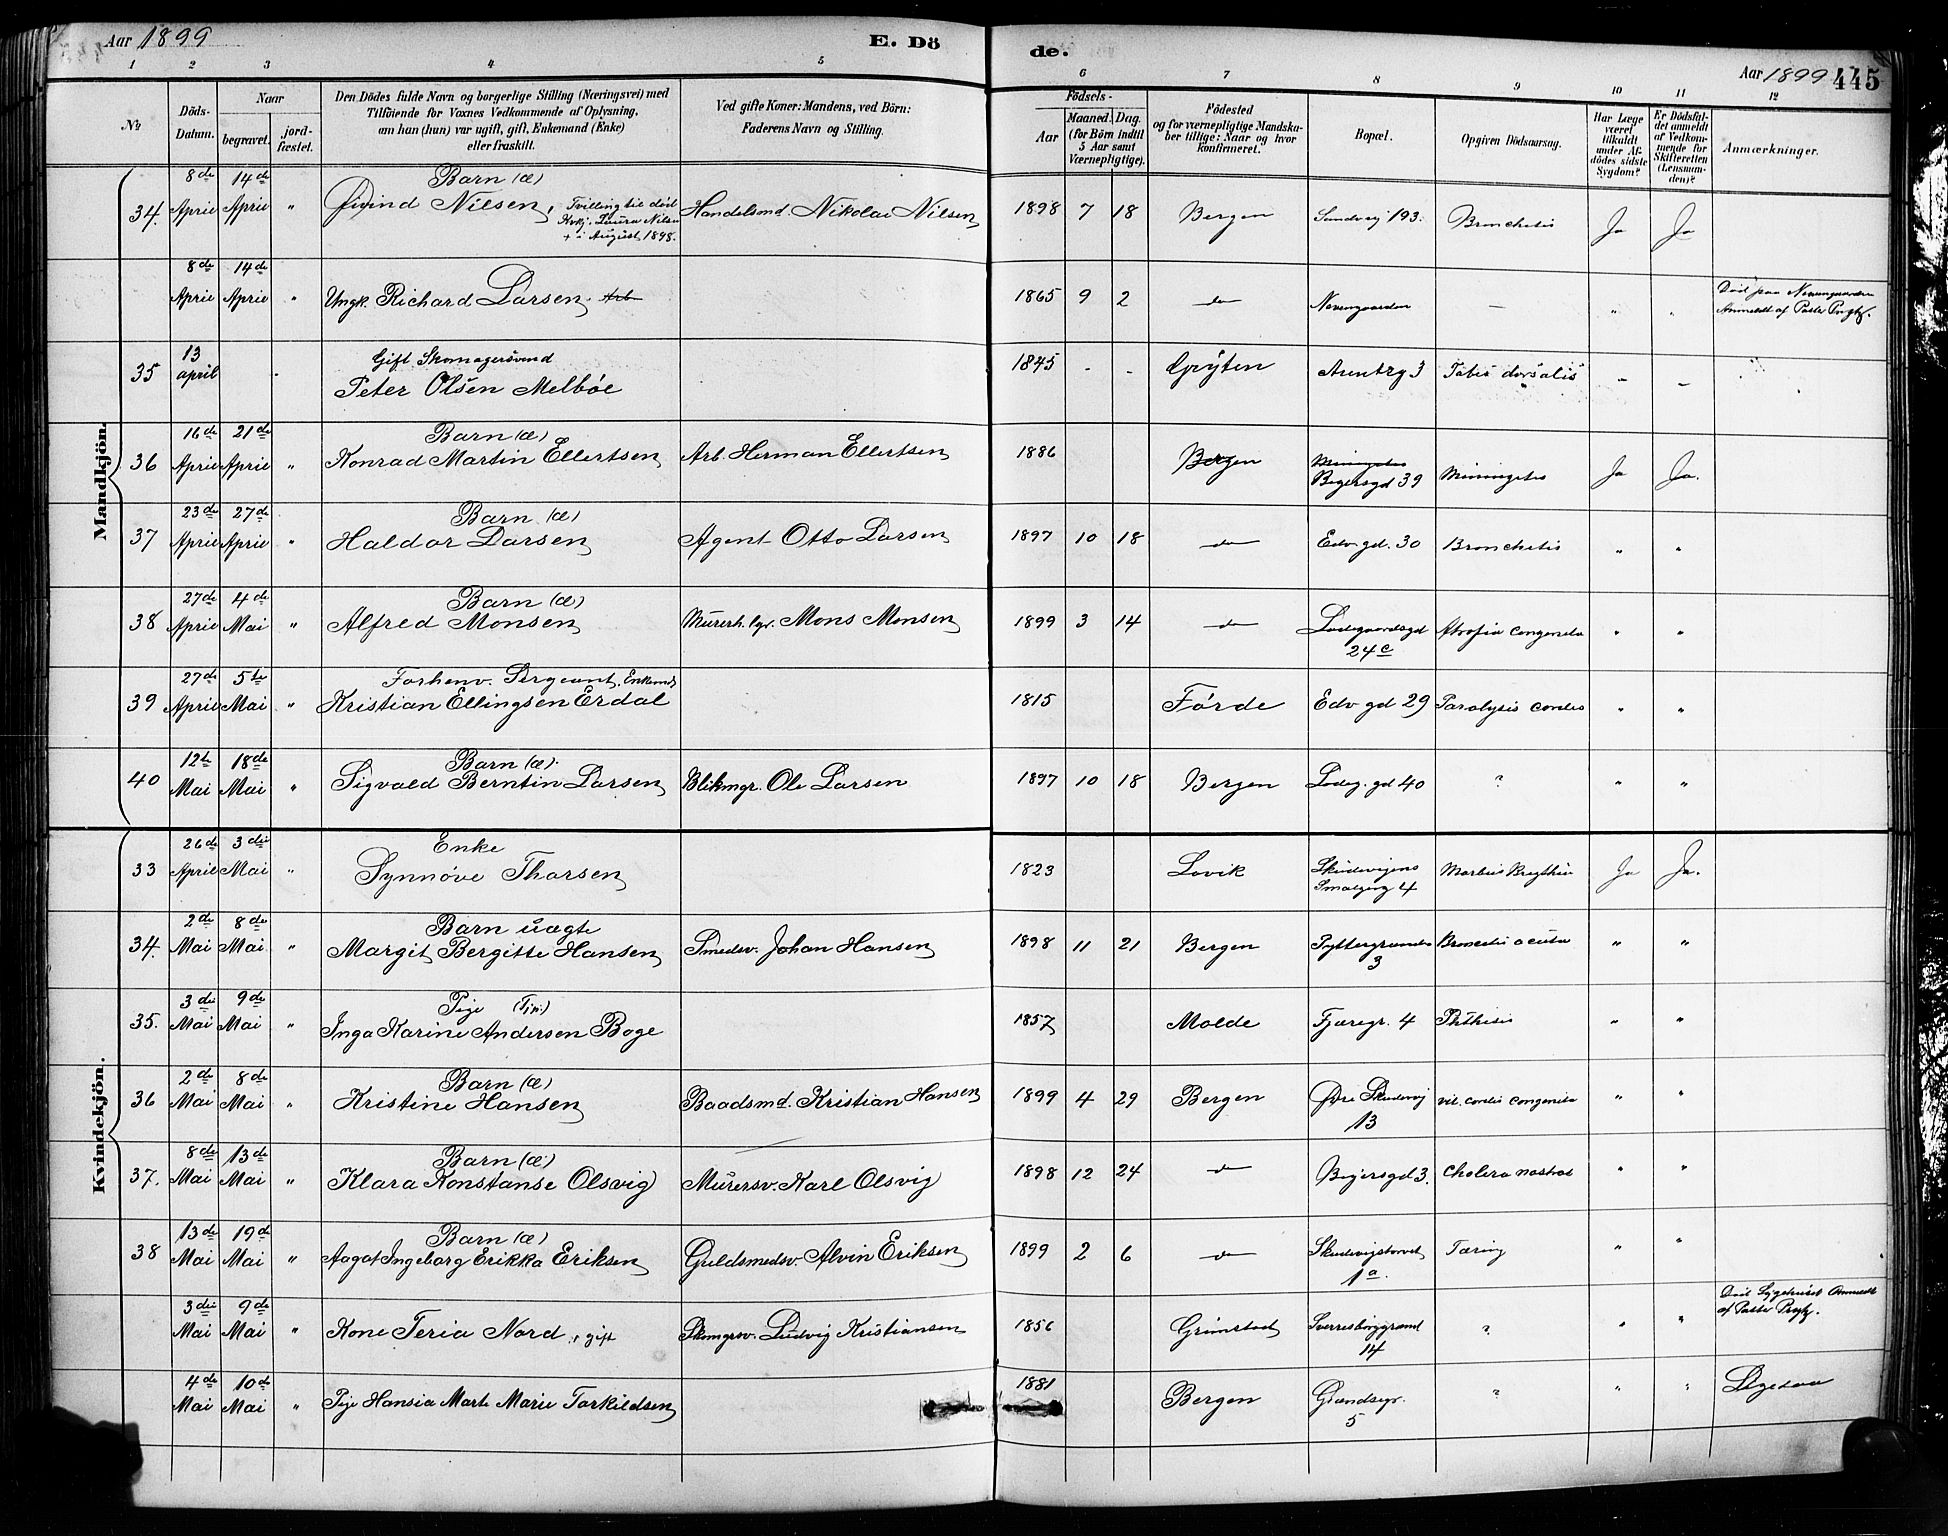 Aar 1899
E. Dö
de.
Aar 1899
445
1 2 3 4 5 6 7 8 9 10 11 12
No
Döds-
Datum.
Naar
begravet.
jord-
fæstet.
Den Dödes fulde Navn og borgerlige Stilling (Næringsvei) med
Tilföiende for Voxnes Vedkommende af Oplysning,
om han (hun) var ugift, gift, Enkemand (Enke)
eller fraskilt.
Ved gifte Koner: Mandens, ved Börn:
Faderens Navn og Stilling.
Födsels-
Aar
Maaned. Dag.
(for Börn indtil
5 Aar samt
Værnepligtige).
Födested
og for værnepligtige Mandska-
ber tillige: Naar og hvor
konfirmeret.
Bopæl.
Opgiven Dödsaarsag.
Har Læge
været
tilkaldt
under Af-
dödes sidste
Sygdom?
Er Dödsfal-
det anmeldt
af Vedkom-
mende for
Skifteretten
(Lensman-
den)?
Anmærkninger.
Mandkjön.
34. 8de April 14de April " Barn (æ)
Øivind Nilsen, Tvilling til död
Laura Nilsen
+ i August 1898.
Handelsmd. Nikolai Nilsen 1898 7 18 Bergen Sandvig 193. Bronchitis Ja Ja
8de April 14de April " Ungk. Richard Larsen, Arb 1865 9 2 do — " "
Anmeldt af Pastor
35 13 april Gift Skomagersvend
Peter Olsen Melböe 1845 - - Gryten 3 Tabes dorsalis — —
36 16de April 21de April " Barn (æ)
Konrad Martin Ellertsen Arb. Herman Ellertsen 1886 Bergen
39 Miningitis Ja Ja.
37 23de April 27de April " Barn (æ)
Haldor Larsen Agent Otto Larsen 1897 10 18 do Edv gd. 30 Bronchitis " "
38 27de April 4de Mai " Barn (æ)
Alfred Monsen Murerh.lgr. Mons Monsen 1899 3 14 do Ladegaardsgd
24c Atrofia congenita " "
39 27de April 5te Mai " Forhenv. Sergeant, Enkemd
Kristian Ellingsen Erdal 1815 Förde Edv gd 29 Paralysis cordis " "
40 12te Mai 18de Mai " Barn (æ).
Sigvald Berntin Larsen Blikmgr. Ole Larsen 1897 10 18 Bergen Ladeg. gd 40 ? " "
Kvindekjön.
33 26de April 3die Mai " Enke
Synnöve Thorsen 1823 Lavik Skudevigens
4 Morbus Ja Ja.
34. 2de Mai 8de Mai " Barn uægte
Margit Bergitte Hansen Smedsv. Johan Hansen 1898 11 21 Bergen
3 acuta " "
35. 3die Mai 9de Mai " Pige
Inga Karine Andersen Boge 1857 Molde Fjæregr. 4 Phthisis " "
36 2de Mai 8de Mai " Barn (æ)
Kristine Hansen Baadsmd. Kristian Hansen 1899 4 29 Bergen Øvre Skudevig
13 vit. cordis congenita " "
37. 8de Mai 13de Mai " Barn (æ)
Klara Konstanse Olsvig Murersv. Karl Olsvig 1898 12 24 do 3. Cholera nostras " "
38 13de Mai 19de Mai " Barn (æ)
Aagot Ingeborg Erikka Eriksen Guldsmedsv. Alvin Eriksen 1899 2 6 do Skudevigstorvet
1a. Tæring " "
3die Mai 9de Mai " Kone Teria Nord, gift Skomgrsv. Ludvig Kristiansen 1856 Grimstad Sverresborggrænd
14 ? " "
Död Sygehuset Anmeldt
af Pastor
4de Mai 10de Mai " Pige Hansia Marte Marie Torkildsen 1881 Bergen
5 ? " "